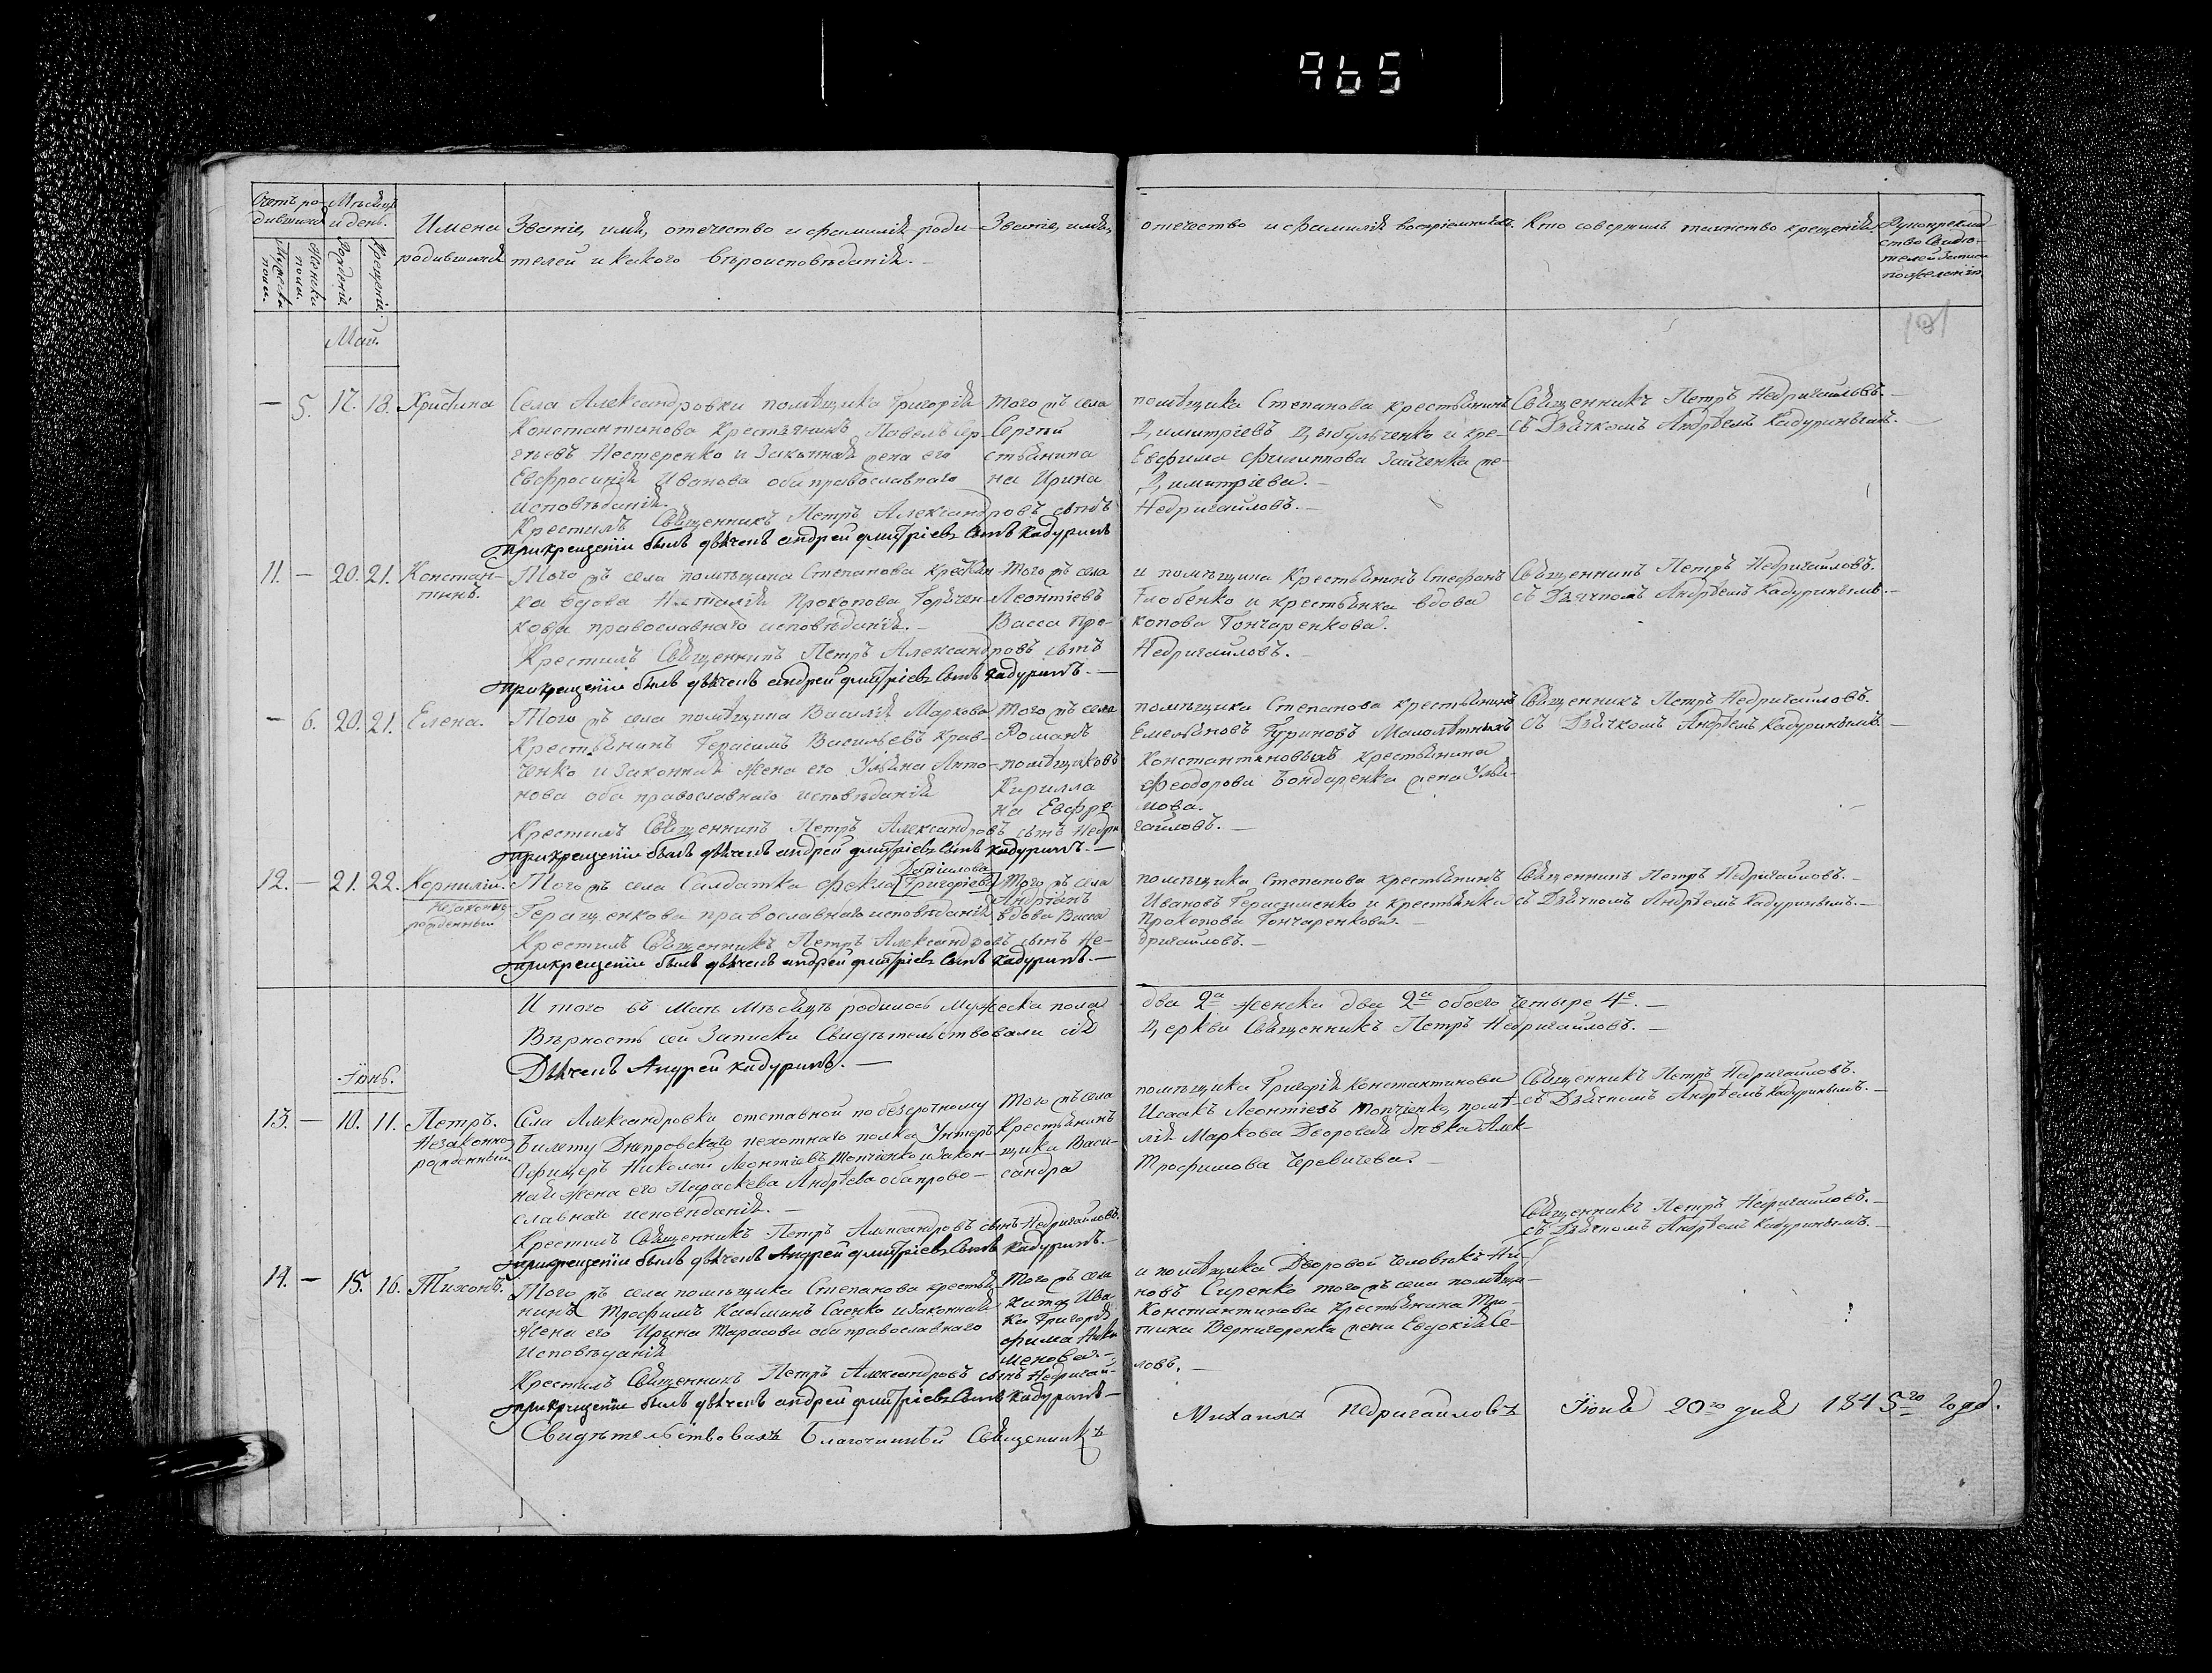 965
Счетъ ро-
дившихся
Мѣсяцъ
и день.
Имена
родившихся
Званіе, имя, отечество и фамилія роди-
телей и какого вѣроисповѣданія.
Званіе, имя, отечество и фамилія воспріемниковъ.
Кто совершилъ таинство крещенія.
Рукоприклад-
ство свидѣ-
телей записи
по желанію
Мужеска
пола.
Женска
пола.
Рожденія
Крещенія.
101
Май.
— 5. 17. 18. Христина
Села Александровки помѣщика Григорія
Константинова крестьянинъ Павелъ Сер-
гѣевъ Нестеренко и законная жена его
Евфросинія Иванова оба православнаго
исповѣданія.
Того жъ села помѣщика Степанова крестьянинъ
Сергѣй Димитріевъ Цыбульченко и кре-
стьянина Евфима Филиппова Зайченка же-
на Ирина Димитріева.
Священникъ Петръ Недригайловъ.
съ Дьячкомъ Андреемъ Кадуринымъ.
Крестилъ Священникъ Петръ Александровъ сынъ Недригайловъ.
при крещеніи былъ дьячекъ андрей дмитріевъ сынъ кадуринъ
11. — 20. 21. Констан-
тинъ.
Того жъ села помѣщика Степанова крестьян-
ка вдова Наталія Прокопова Гончарен-
кова православнаго исповѣданія.
Того жъ села и помѣщика крестьянинъ Стефанъ
Леонтіевъ Глобенко и крестьянка вдова
Васса Прокопова Гончаренкова.
Священникъ Петръ Недригайловъ.
съ Дьячкомъ Андреемъ Кадуринымъ.
Крестилъ Священникъ Петръ Александровъ сынъ Недригайловъ.
при крещеніи былъ дьячекъ андрей дмитріевъ сынъ кадуринъ.
— 6. 20. 21. Елена.
Того жъ села помѣщика Василія Маркова
крестьянинъ Герасимъ Васильевъ Крав-
ченко и законная жена его Ульяна Анто-
нова оба православнаго исповѣданія
Того жъ села помѣщика Степанова крестьянинъ
Романъ Емельяновъ Гуриновъ Малолѣтныхъ
помѣщиковъ Константиновыхъ крестьянина
Кирилла Феодорова Бондаренка жена
Священникъ Петръ Недригайловъ.
съ Дьячкомъ Андреемъ Кадуринымъ.
Крестилъ Священникъ Петръ Александровъ сынъ Недригайловъ.
при крещеніи былъ дьячекъ андрей дмитріевъ сынъ кадуринъ.
12. — 21. 22. Корнилій.
Незаконно
рожденный
Даніилова
Того жъ села Салдатка Фекла Григоріева
Геращенкова православнаго исповѣданія
Того жъ села помѣщика Степанова крестьянинъ
Андріанъ Ивановъ Герасименко и крестьянка
вдова Васса Прокопова Гончаренкова.
Священникъ Петръ Недригайловъ.
съ Дьячкомъ Андреемъ Кадуринымъ.
Крестилъ Священникъ Петръ Александровъ сынъ Недригайловъ.
при крещеніи былъ дьячекъ андрей дмитріевъ сынъ кадуринъ.
Итого въ Маѣ Мѣсяцѣ родилось мужеска пола два 2а женска два 2а обоего четыре 4е.
Вѣрность сей записки свидѣтельствовали сія Церкви Священникъ Петръ Недригайловъ.
Дьячекъ Андрей кадуринъ.
Іюнь.
13. — 10. 11. Петръ.
Незаконно
рожденный
Села Александровки отставной по безсрочному
билету Днепровскаго пехотнаго полка Унтеръ
Офицеръ Николай Леонтіевъ Топчіенко и закон-
ная жена его Параскева Андреева оба право-
славнаго исповѣданія.
Того жъ села помѣщика Григорія Константинова
крестьянинъ Исаакъ Леонтіевъ Топчіенко, помѣ-
щика Василія Маркова Дворовая дѣвка Алек-
сандра Трофимова Черевичева.
Священникъ Петръ Недригайловъ.
съ Дьячкомъ Андреемъ Кадуринымъ.
Крестилъ Священникъ Петръ Александровъ сынъ Недригайловъ.
при крещеніи былъ дьячекъ Андрей дмитріевъ сынъ кадуринъ.
14. — 15. 16. Тихонъ.
Того жъ села помѣщика Степанова крестья-
нинъ Трофимъ Касьминъ Саенко и законная
жена его Ирина Тарасова оба православнаго
исповѣданія
Того жъ села и помѣщика Дворовой человѣкъ Ни-
кита Ивановъ Сиренко того жъ села помѣщи-
ка Григорія Константинова крестьянина Тро-
фима Вернигоренка жена Евдокія Се-
менова.
Священникъ Петръ Недригайловъ.
съ Дьячкомъ Андреемъ Кадуринымъ.
Крестилъ Священникъ Петръ Александровъ сынъ Недригайловъ.
при крещеніи былъ дьячекъ андрей дмитріевъ сынъ кадуринъ
Свидѣтельствовалъ Благочинный Священникъ Михаилъ Недригайловъ Іюня 20го дня 1845го года.